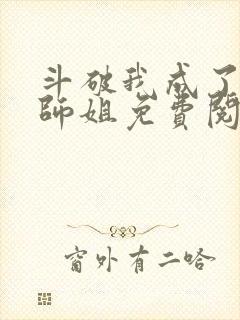 斗破我成了
师姐免费阅
窗外有二哈